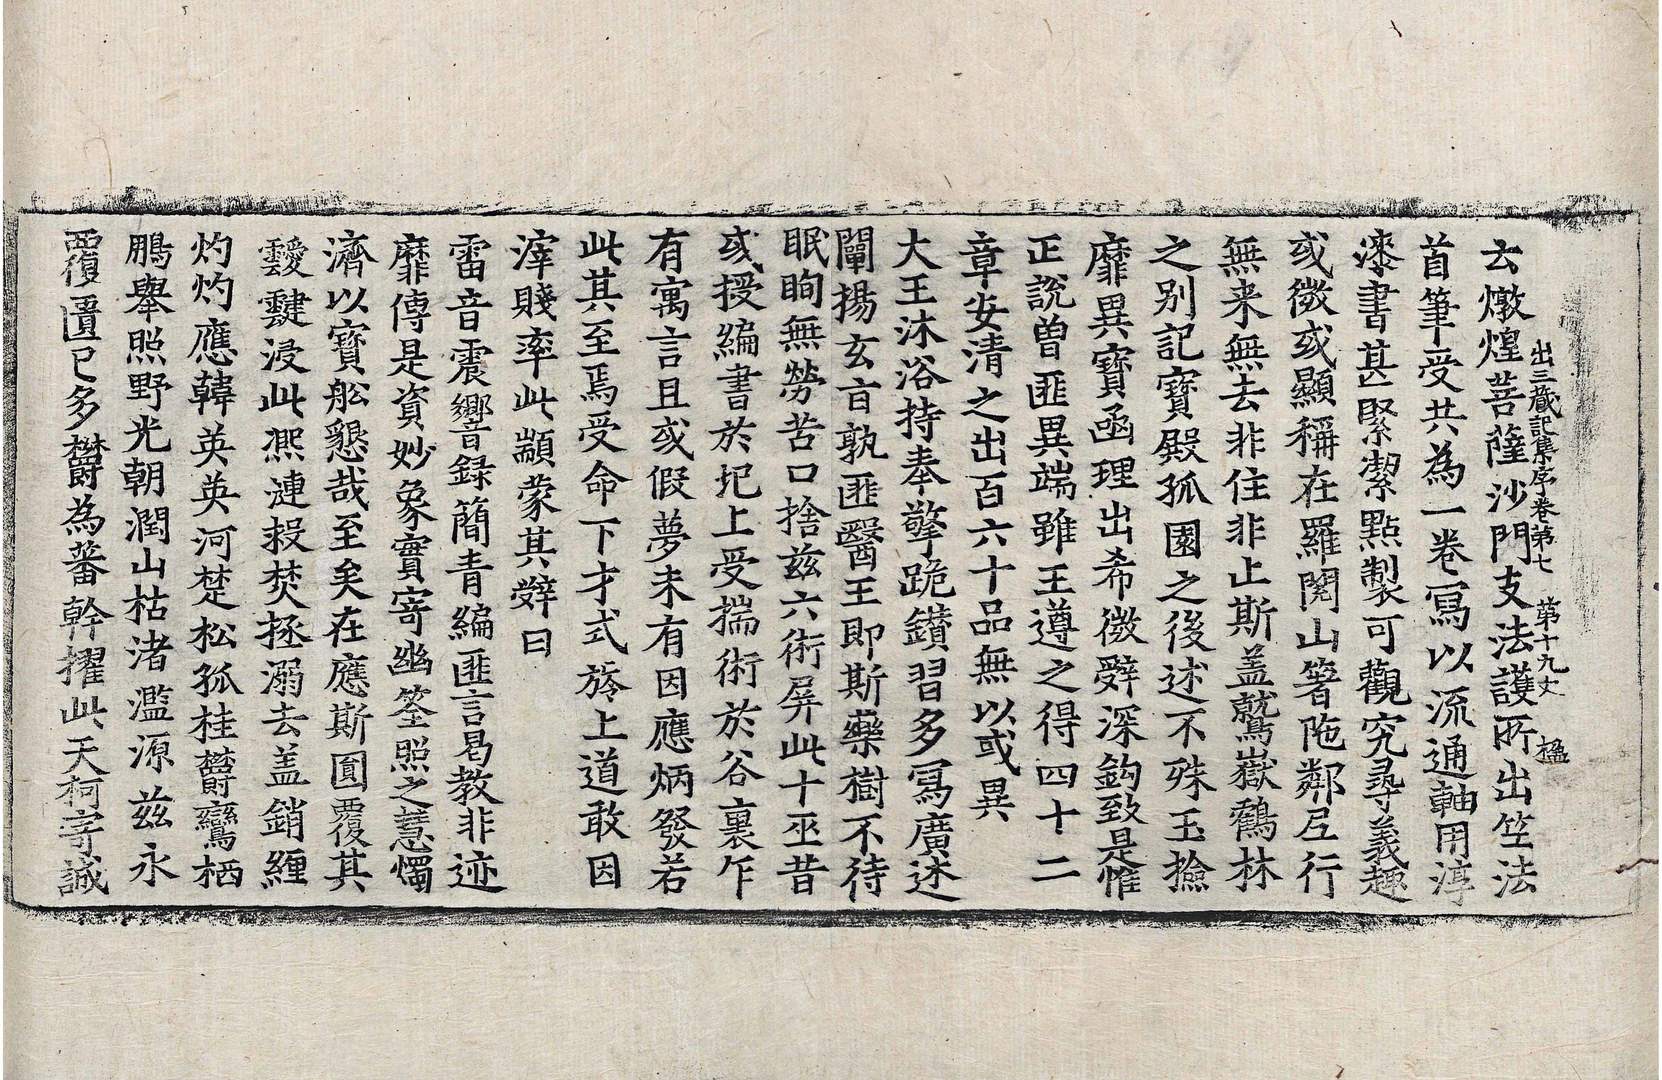 出三藏記集序卷第七 第十九丈 楹
云燉煌菩薩沙門支法護所出竺法
首筆受共為一卷寫以流通軸用淳
漆書甚緊潔點製可觀究尋義趣
或微或顯稱在羅閱山箸陁鄰尼行
無来無去非住非止斯盖鷲嶽鶴林
之别記寶殿孤園之後述不殊玉撿
靡異寶函理出希微辝深鈎致是惟
正說曽匪異端雖王遵之得四十二
章安清之出百六十品無以或異
大王沐浴持奉擎跪鑚習多寫廣述
闡揚玄㫖孰匪醫王即斯藥樹不待
眠眴無勞苦口捨兹六術屏此十巫昔
或授編書於圯上受揣術於谷裏乍
有寓言且或假夢未有因應炳發若
此其至焉受命下才式旍上道敢因
滓賤率此顓蒙其辝曰
雷音震響録蕳青編匪言曷教非迹
靡傳是資妙象實寄幽筌照之慧燭
濟以寶舩懇哉至矣在應斯圎覆其
靉靆浸此熈漣拯焚拯溺去盖銷纏
灼灼應韓英英河楚松孤桂欝鸞栖
鵬舉照野光朝潤山枯渚濫源兹永
覆匱已多欝為蕃幹擢此天柯寄誠